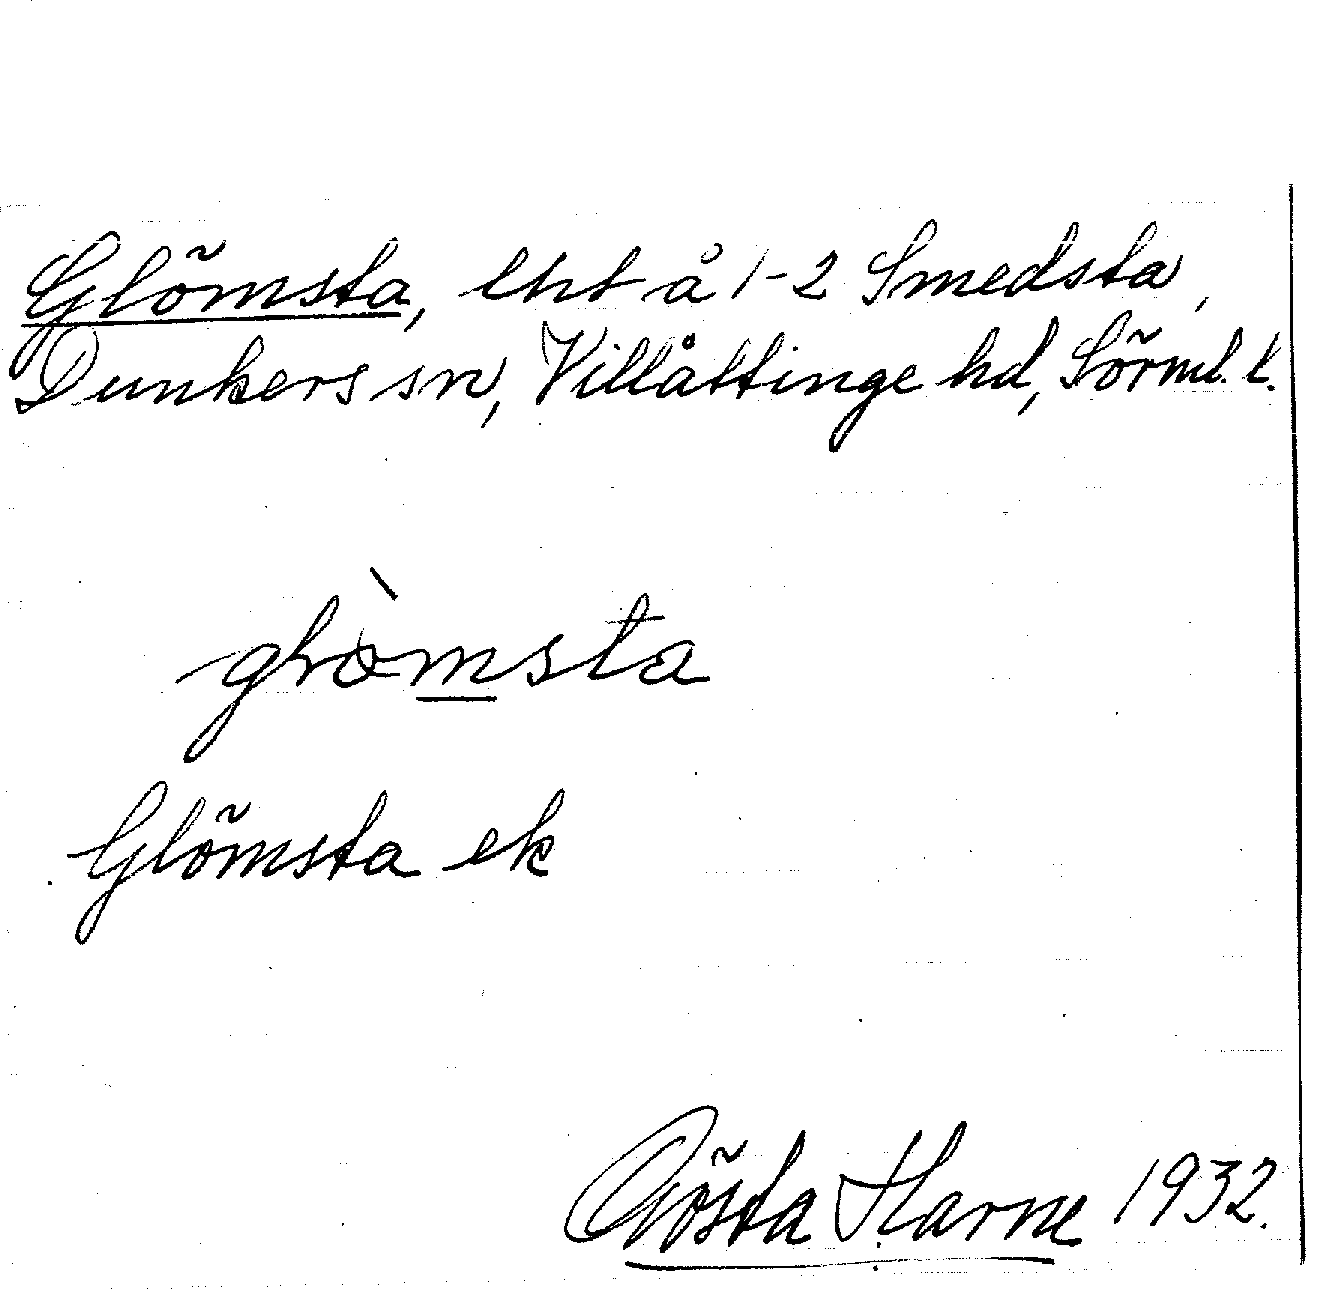 Glömsta, lht å 1-2 Smedsta,
Dunkers sn, Villåttinge hd, Sörml. l.
Glömsta ek
Gösta Harne 1932.